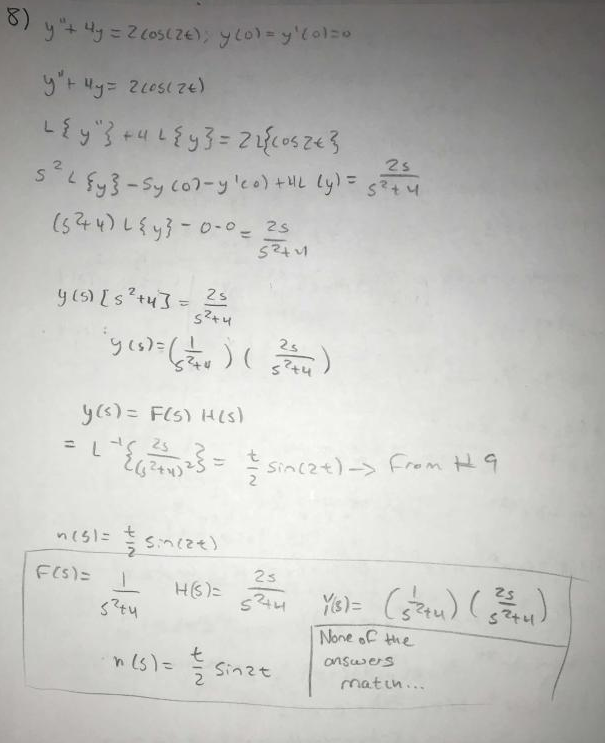 8) y"+ 4y = 2cos(2t); y(0) = y'(0)=0
y"+ 4y = 2cos(2t)
L{y"} + 4L{y} = 2L{cos2t}
s²L{y} - Sy(0) - y'(0) + 4L(y) = 2s/s²+4
(s²+4) L{y} - 0-0 = 2s/s²+4
y(s) [s²+4] = 2s/s²+4
y(s) = (1/s²+4) (2s/s²+4)
y(s) = F(s) H(s)
= L⁻¹{2s/(s²+4)²} = t/2 sin(2t) -> From #9
n(s) = t/2 sin(2t)
F(s) = 1/s²+4 H(s) = 2s/s²+4 Y(s) = (1/s²+4) (2s/s²+4)
n(s) = t/2 sin2t
None of the
answers
match...